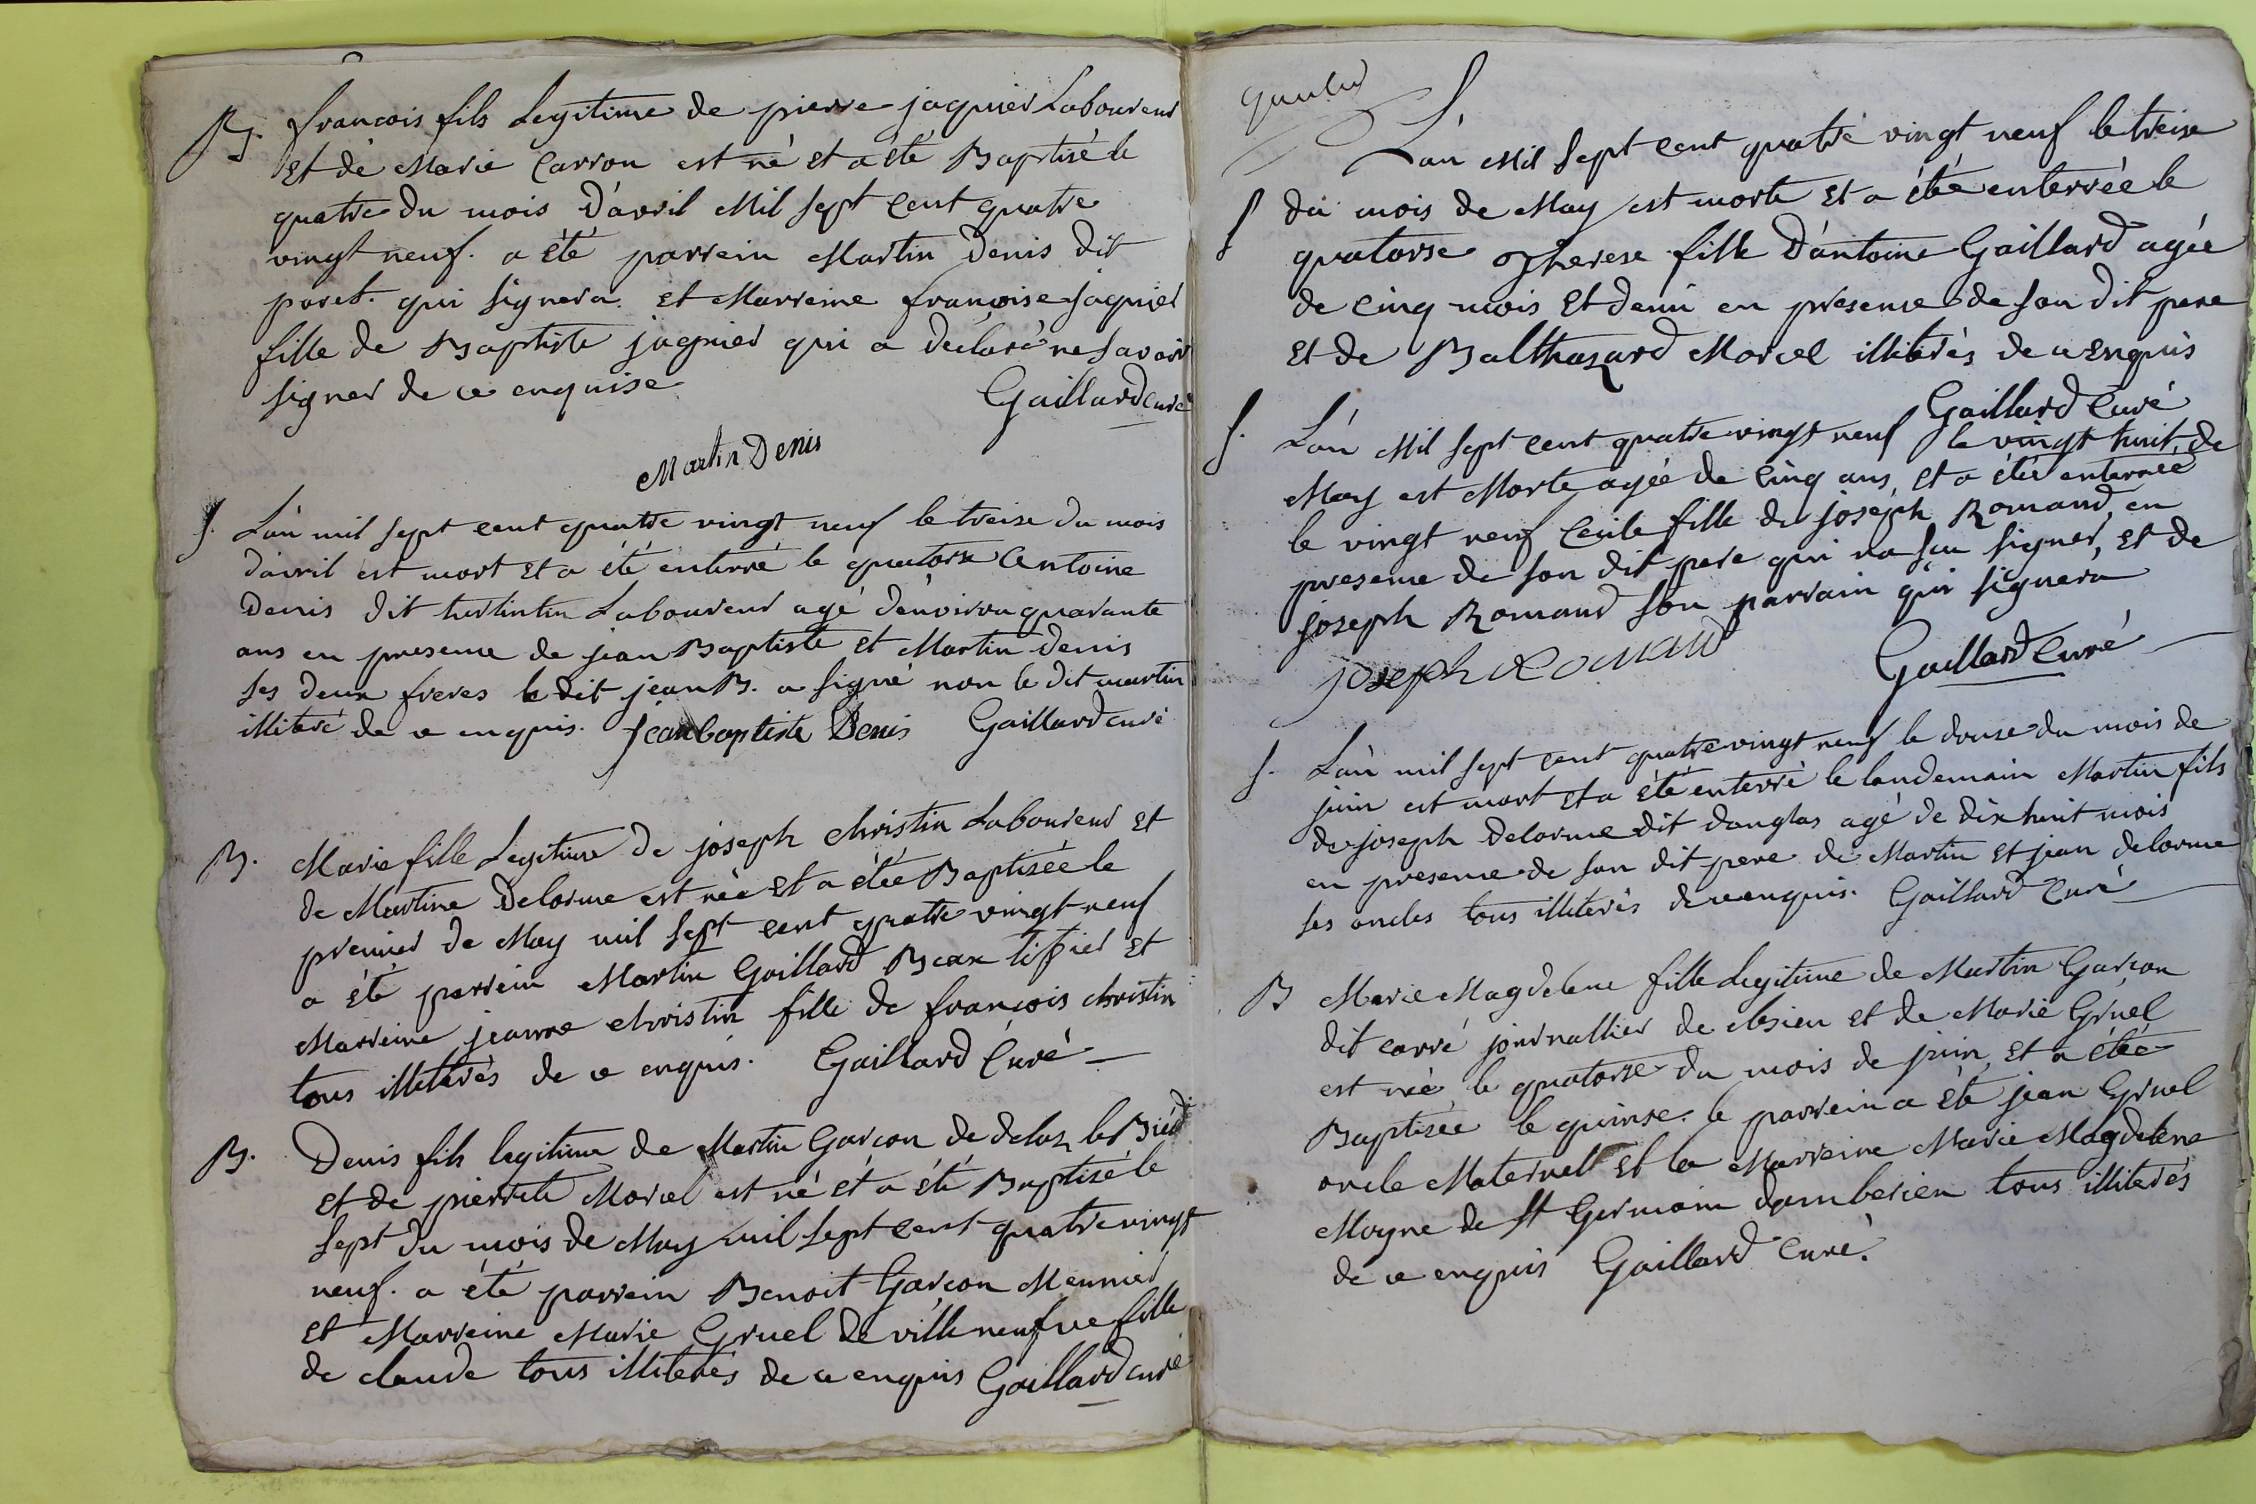 B. françois fils Legitime de pierre jaquier Laboureur
Et de Marie Carron est né Et a été Baptisé le
quatre du mois D'avril Mil sept Cent quatre
vingt neuf. a été parrein Martin Denis dit
poret. qui signera. et Marreine françoise jaquier
fille de Baptiste jaquier qui a déclaré ne savoir
signer de ce enquise Gaillard curé
Martin Denis
S. L'an mil sept cent quatre vingt neuf le treise du mois
d'avril est mort Et a été enterré le quatorse Antoine
Denis dit turlintin Laboureur agé d'environ quarante
ans en presence de jean Baptiste et Martin denis
ses deux freres le dit jean B. a signé non le dit martin
illiteré de ce enquis. Jeanbaptiste Denis Gaillard curé
B. Marie fille Legitime de joseph christin Laboureur et
de Martine Delorme est née Et a étée Baptisée le
premier de May mil sept cent quatre vingt neuf
a été parrein Martin Gaillard Beau et
Marreine jeanne christin fille de françois christin
tous illiterés de ce enquis. Gaillard Curé
B. Denis fils legitime de Martin Garçon de
et de pierrete Morel est né et a été Baptisé le
sept du mois de May mil sept cent quatre vingt
neuf. a été parrein Benoit Garçon Meunier
et Marreine Marie Gruel de villeneufve fille
de claude tous illiterés de ce enquis Gaillard curé
L'an Mil sept cent quatre vingt neuf le treise
S du mois de May est morte Et a étée enterrée le
quatorse Therese fille D'antoine Gaillard agée
de cinq mois Et demi en presence de son dit pere
et de Balthazard Morel illiterés de ce enquis
Gaillard Curé
S. L'an Mil sept cent quatre vingt neuf le vingt huit de
May est Morte agée de Cinq ans, et a étée enterrée
le vingt neuf Cecile fille de joseph Romand, en
presence de son dit pere qui n'a sçu signer, et de
joseph Romand son parrain qui signera
joseph Romand Gaillard Curé
S. L'an mil sept cent quatre vingt neuf le douse du mois de
juin est mort et a été enterré le landemain Martin fils
de joseph Delorme dit danglas agé de dix huit mois
en presence de son dit pere de Martin et jean delorme
ses oncles tous illiterés de ce enquis. Gaillard Curé
B Marie Magdelene fille Legitime de Martin Garçon
dit carré journallier de et de Marie Gruel
est née le quatorse du mois de juin, et a étée
Baptisée le quinse. le parrein a été jean Gruel
oncle Maternell et la Marreine Marie Magdelene
Moyne de St Germain d'amberieu tous illiterés
de ce enquis Gaillard Curé.